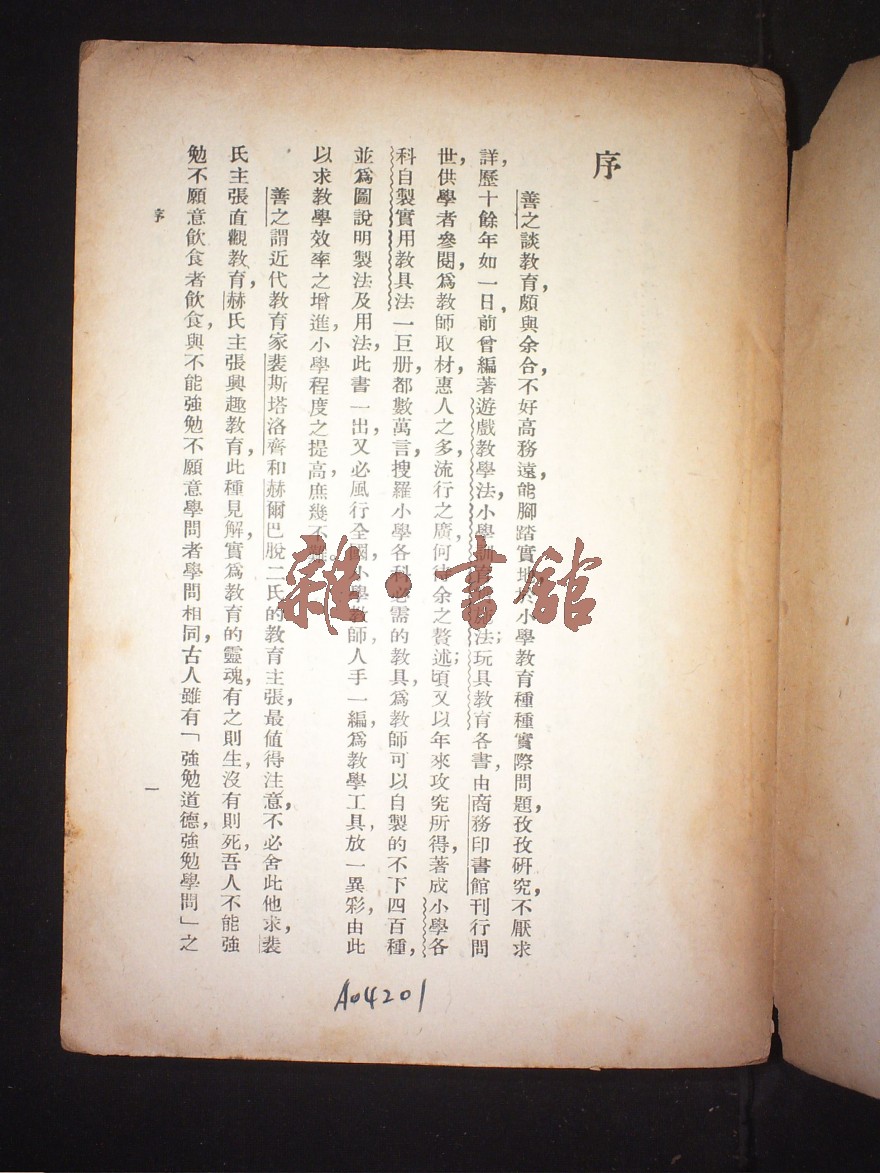 序
善之談教育，頗與余合，不好高務遠，能腳踏實地，於小學教育種種實際問題，孜孜研究，不厭求
詳，歷十餘年如一日，前曾編著遊戲教學法，小學法；玩具教育各書，由商務印書館刊行問
世，供學者參閱，爲教師取材，惠人之多，流行之廣，何待余之贅述；頃又以年來攻究所得，著成小學各
科自製實用教具法一巨册，都數萬言，搜羅小學各科必需的教具，爲教師可以自製的不下四百種，
並爲圖說明製法及用法，此書一出，又必風行全國，小學教師，人手一編，爲教學工具，放一異彩，由此
以求教學效率之增進，小學程度之提高，庶幾不
善之謂近代教育家裴斯塔洛齊和赫爾巴脫二氏的教育主張，最值得注意，不必舍此他求，裴
氏主張直觀教育，赫氏主張興趣教育，此種見解，實爲教育的靈魂，有之則生，沒有則死，吾人不能強
勉不願意飲食者飲食，與不能強勉不願意學問者學問相同，古人雖有「強勉道德，強勉學問」之
序
一
A04201
雜·書館